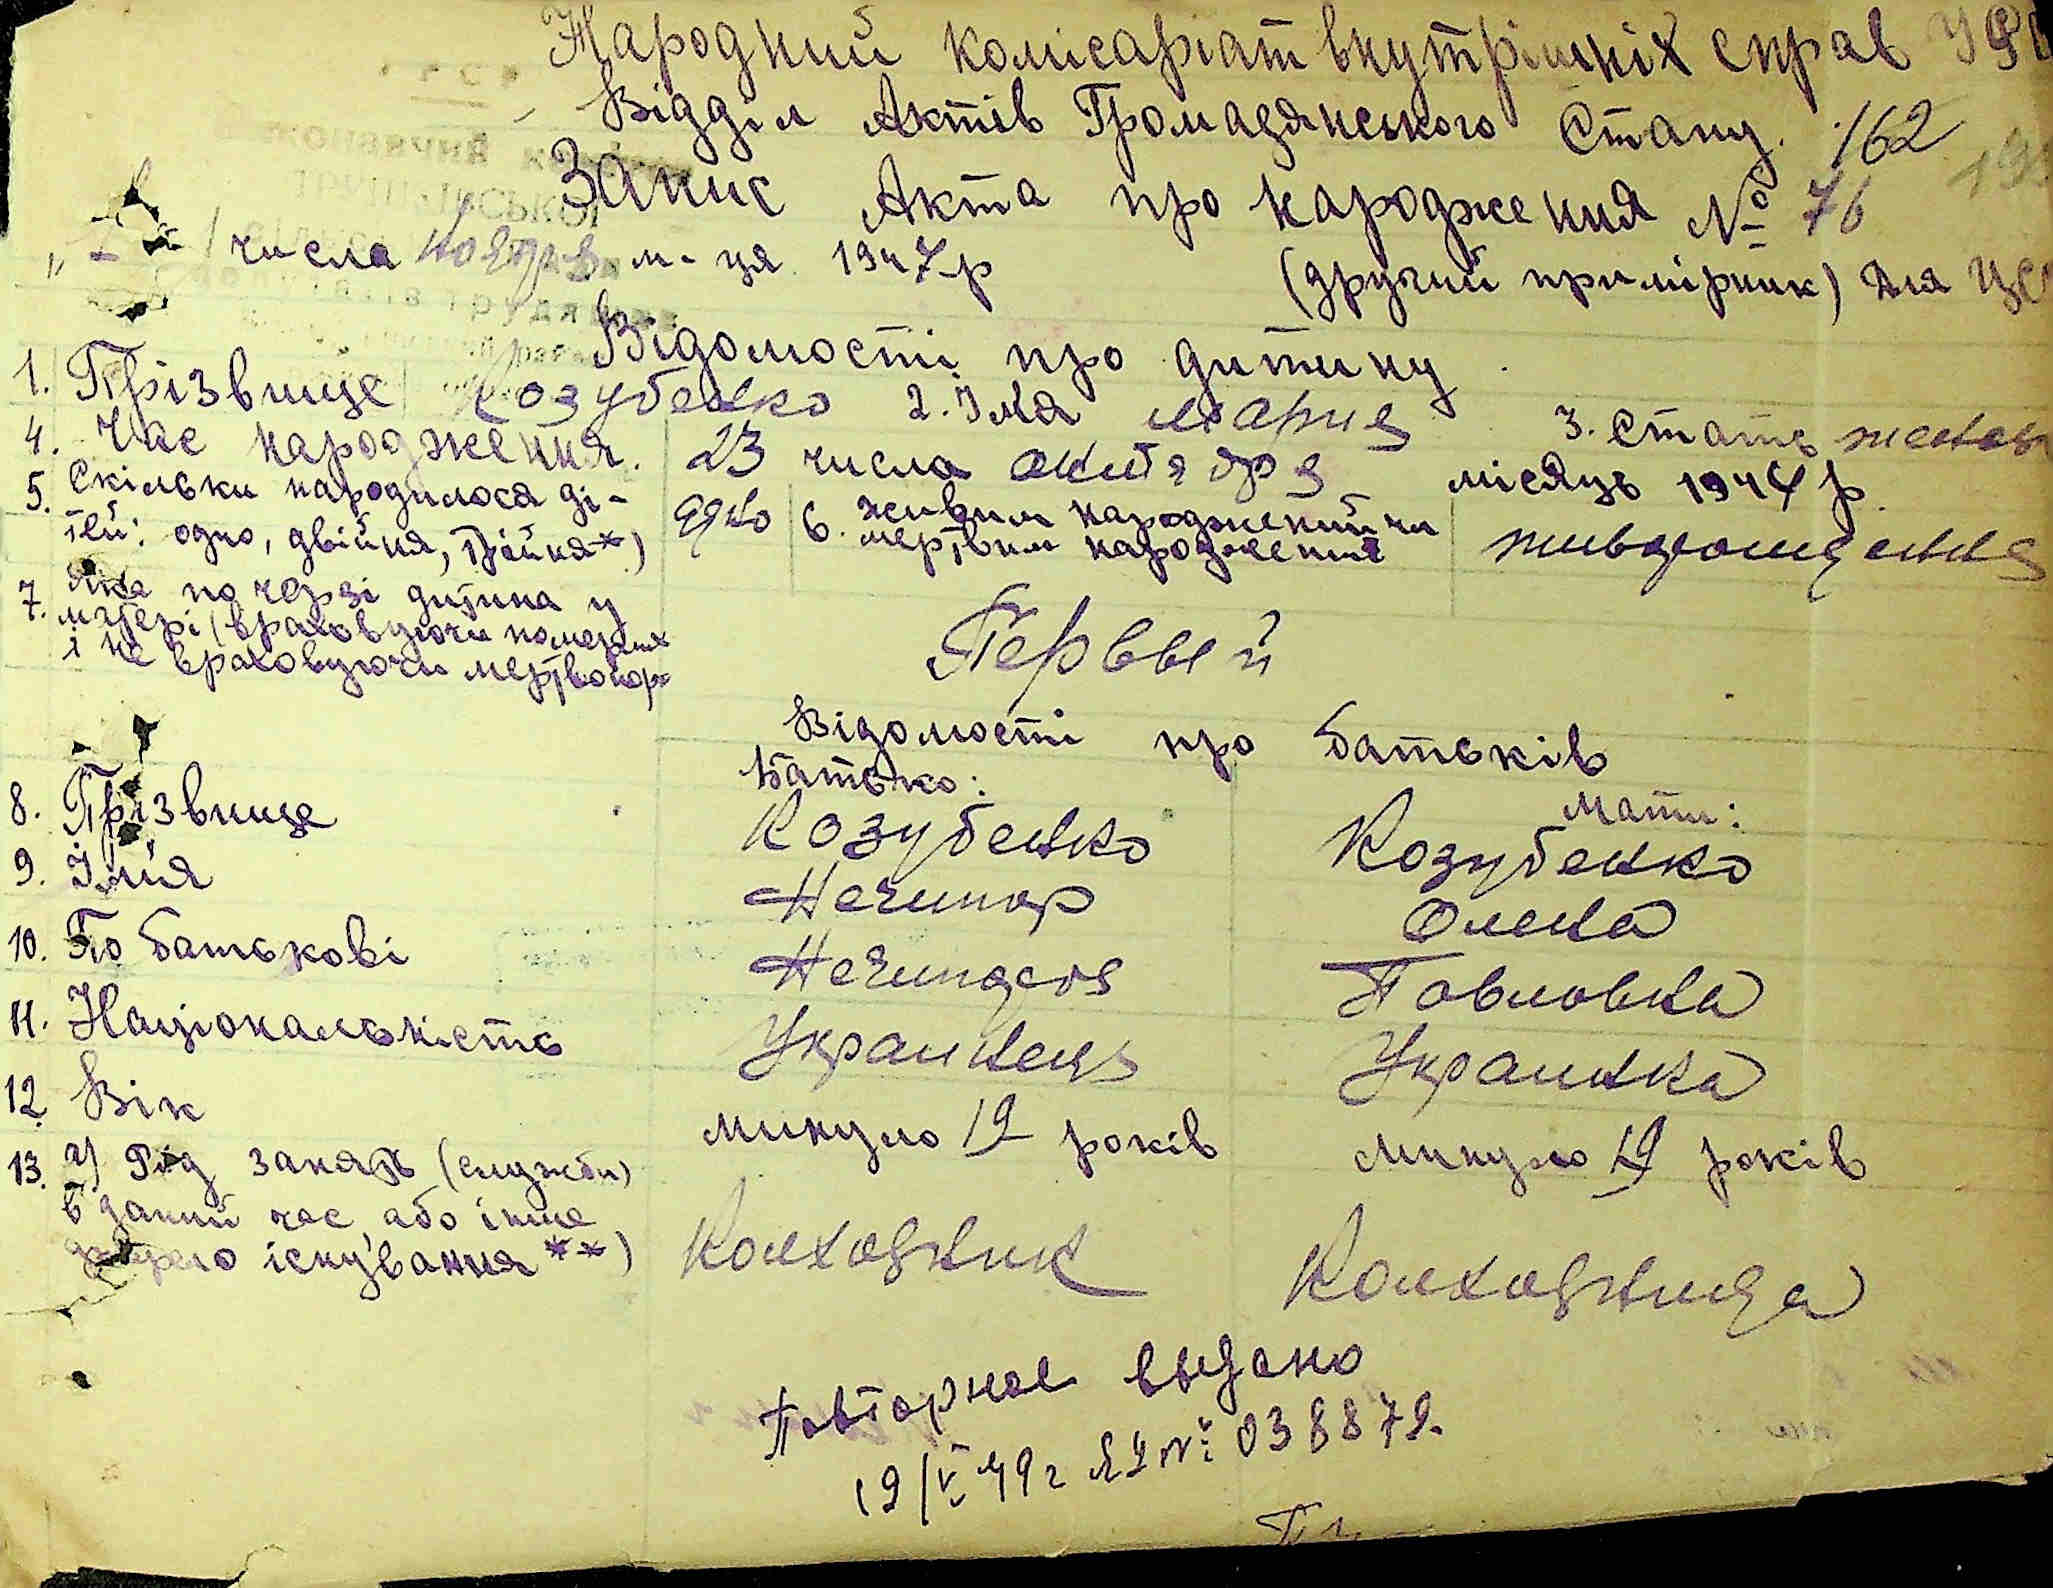 Народний комісаріат внутрішніх справ УРСР
Відділ Актів Громадянського Стану. 162
Запис Акта про народження № 76
числа ноября м-ця 1947р (другий примірник) для
Відомості про дитину
1. Прізвище Козубенко 2. Імя Мария 3. Стать женская
4. Час народження. 23 числа октября місяць 1947 р
5. Скільки народилося ді-
тей: одно, двійня, трійня*) одно 6. живим народжений чи
мертвим народжений живорощенная
7. Яка по черзі дитина у
матері (враховуючи померлих
і не враховуючи мертвонар. Первый
Відомості про батьків
Батько: Мати:
8. Прізвище Козубенко Козубенко
9. Ім'я Нечипор Олена
10. По батькові Павловна
11. Національність Украинец Украинка
12. Вік минуло 19 років минуло 19 років
13. а) Рід занять (служби)
в даний час або інше
джерело існування **) Колхозник Колхозница
Повторное выдано
19/V 49 г № 038879.